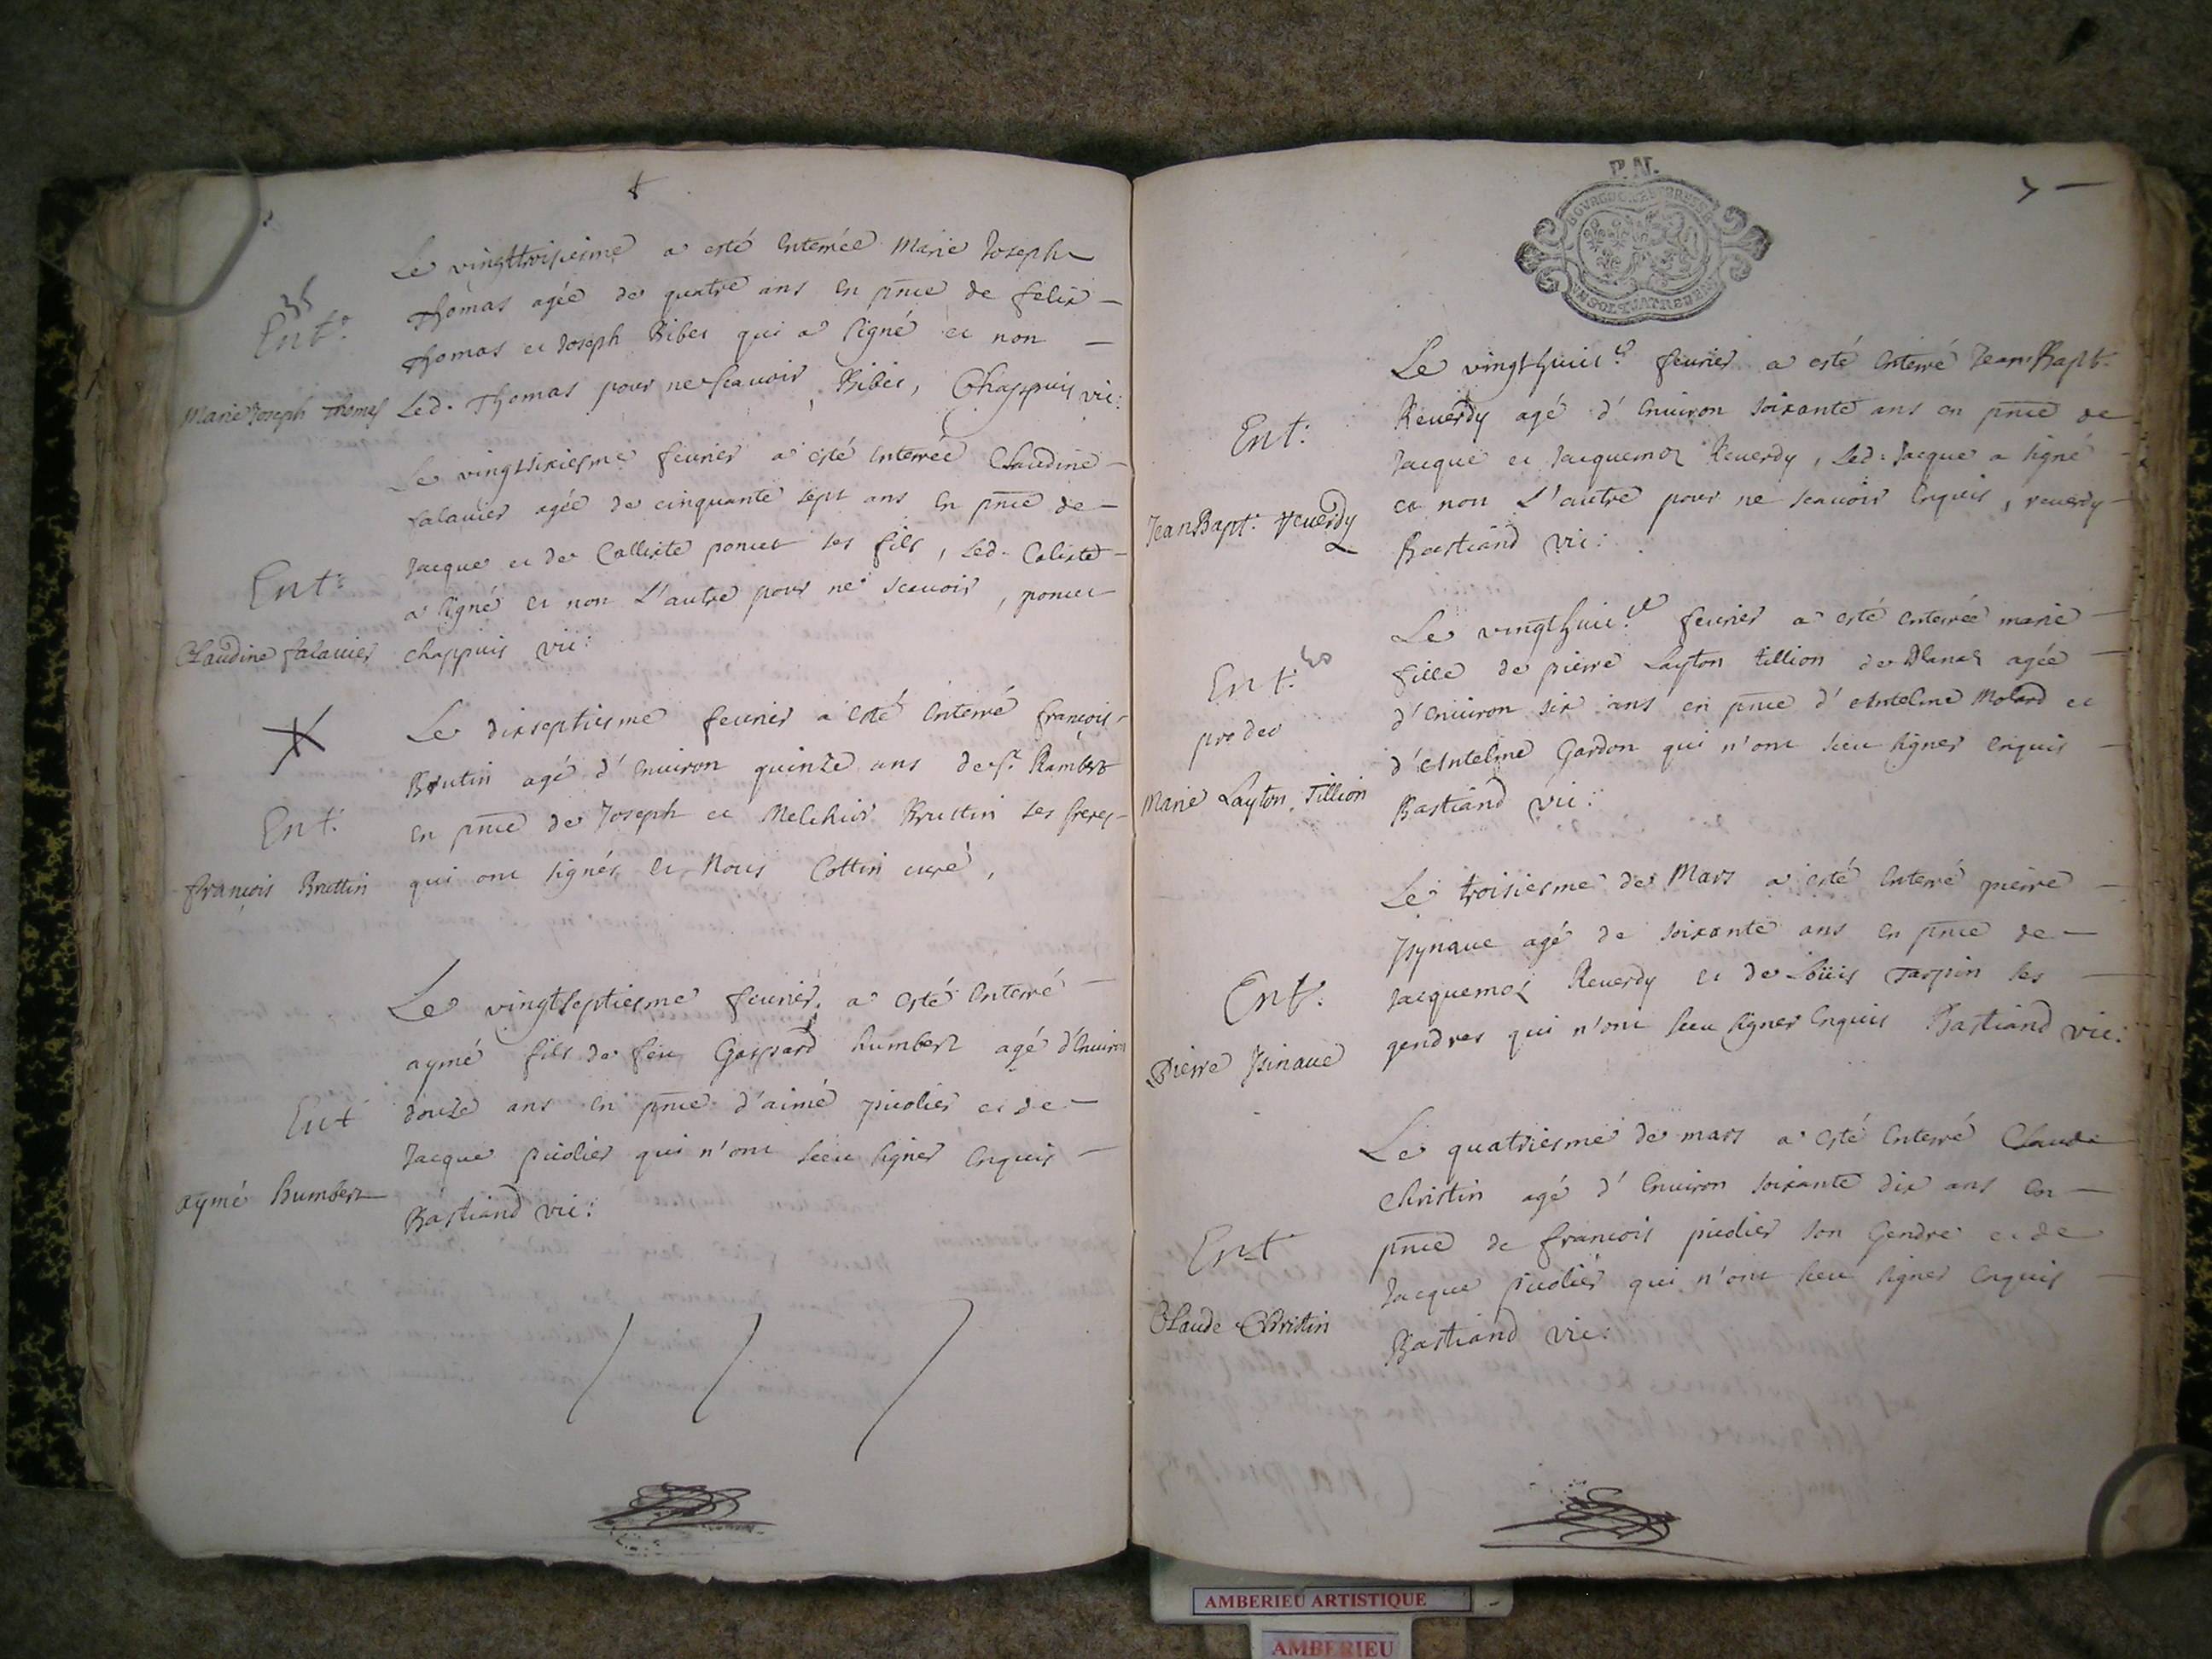 35
Ent:
Marie Joseph Thomas
Le vingttroisiesme a esté enterrée Marie Joseph
Thomas agée de quatre ans en pnce de felix
Thomas et Joseph Bibet qui a signé et non
Led. Thomas pour ne scauoir, Bibet, Chappuis vic:
Ent:
Claudine falauier
Le vingtsixiesme feurier a esté enterrée Claudine
falauier agée de cinquante sept ans en pnce de
Jacque et de Calliste poncet ses fils, Led. Calixte
a signé et non L'autre pour ne scauoir, poncet
chappuis vic:
Ent:
françois Bruttin
Le dixseptiesme feurier a esté enterré françois
Brutin agé d'enuiron quinze ans de St. Rambert
en pnce de Joseph et Melchior Bruttin ses freres
qui ont signés et Nous Cottin curé,
Ent
aymé humbert
Le vingtseptiesme feurier a esté enterré
aymé fils de feu Gaspard humbert agé d'enuiron
douze ans en pnce d'aimé picolier et de
Jacque picolier qui n'ont sceu signer enquis
Bastiand vic:
P.N.
BOVRGOGNE BRESSE
VN SOL QVATRE DEN
7
Ent:
Jean Bapt. Reuerdy
Le vingthuict.e feurier a esté enterré Jean Bapt.
Reuerdy agé d'enuiron soixante ans en pnce de
Jacque et Jacquemoz Reuerdy, Led: Jacque a signé
et non L'autre pour ne scauoir enquis, reuerdy
Bastiand vic:
Ent: 40
pro deo
Marie Layton Tillion
Le vingthuict.e feurier a esté enterrée marie
fille de pierre Layton tillion de Blanaz agée
d'enuiron six ans en pnce d'Antelme Molard et
d'Antelme Gardon qui n'ont sceu signer enquis
Bastiand vic:
Ent:
Pierre Jsinaue
Le troisiesme de Mars a esté enterré pierre
Jsynaue agé de soixante ans en pnce de
Jacquemoz Reuerdy et de Loüis Tarpin ses
gendres qui n'ont sceu signer enquis Bastiand vic:
Ent
Claude Christin
Le quatriesme de mars a esté enterré Claude
Christin agé d'enuiron soixante dix ans en
pnce de francois picolier son Gendre et de
Jacque picolier qui n'ont sceu signer enquis
Bastiand vic:
AMBERIEU ARTISTIQUE
AMBERIEU